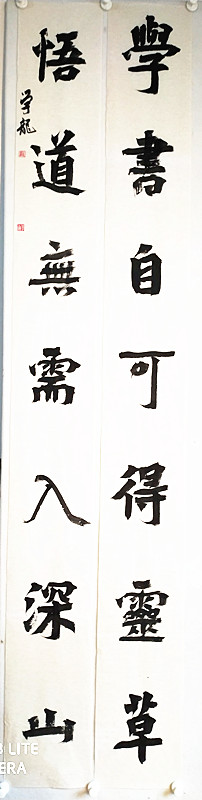 學書自可得靈草
悟道無需入深山
学龍
LITE
ERA